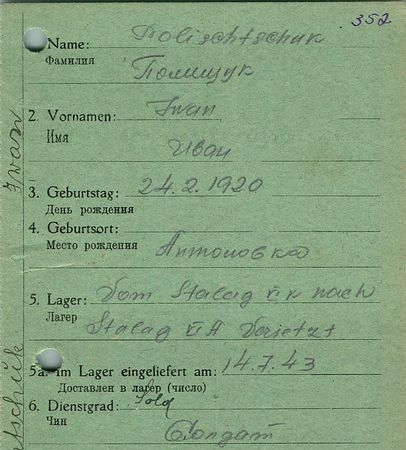 352
1. Name: Polischtschuk
Фамилия Полищук
2. Vornamen: Iwan
Имя
Иван
3. Geburtstag: 24.2.1920
День рождения
4. Geburtsort:
Место рождения Антоновка
5. Lager: Vom Stalag VI K nach
Лагер Stalag VI A Versetzt
5a. im Lager eingeliefert am: 14.7.43
Доставлен в лагер (число)
6. Dienstgrad: Sold
Чин Солдат
Iwan